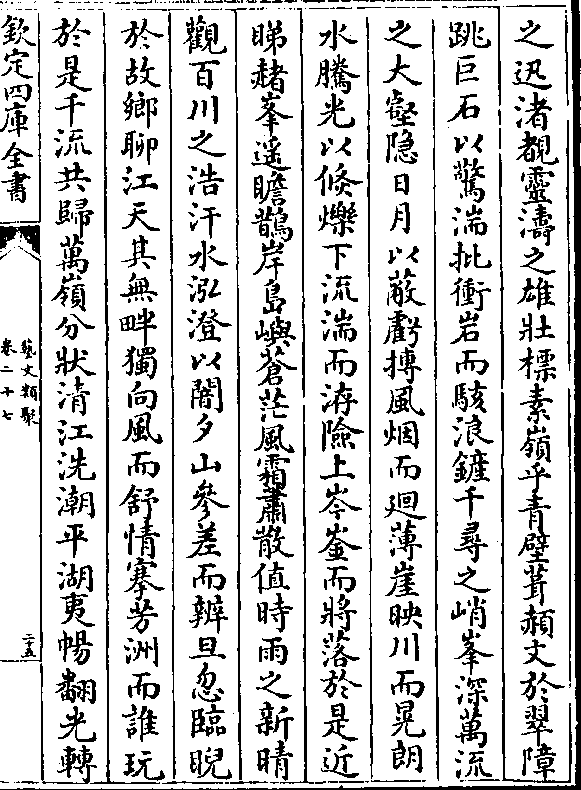 之迅渚覩靈濤之雄壯標素嶺乎青壁葺赬文於翠障
跳巨石以驚湍批衝岩而駭浪鏟千尋之峭峯深萬流
之大壑隐日月以蔽虧摶風烟而迴薄崖映川而晃朗
水騰光以倏爍下流湍而洊險上岑崟而將落於是近
睇赭峯遥瞻鵲岸島嶼蒼茫風霜蕭散值時雨之新晴
觀百川之浩汗水泓澄以闇夕山參差而辨旦忽臨睨
於故鄉聊江天其無畔獨向風而舒情搴芳洲而誰玩
於是千流共歸萬嶺分狀清江洗潮平湖夷暢翻光轉
欽定四庫全書
藝文類聚
卷二十七
二十五